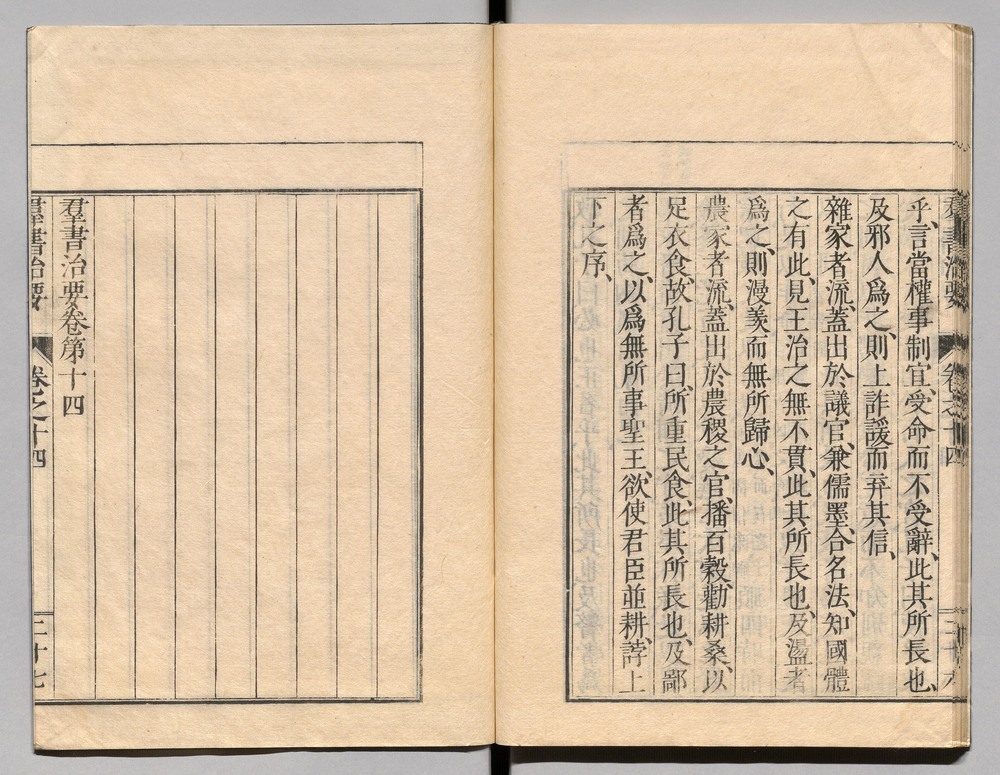 羣書治要 卷之十四
乎、言當權事制宜、受命而不受辭、此其所長也、
及邪人爲之、則上詐諼而弃其信、
雜家者流、蓋出於議官、兼儒墨、合名法、知國體
之有此、見王治之無不貫、此其所長也、及盪者
爲之、則漫羨而無所歸心、
農家者流、蓋出於農稷之官、播百穀、勸耕桑、以
足衣食、故孔子曰、所重民食、此其所長也、及鄙
者爲之、以爲無所事聖王、欲使君臣並耕、誖上
下之序、
羣書治要卷第十四
羣書治要 卷之十四 二十七